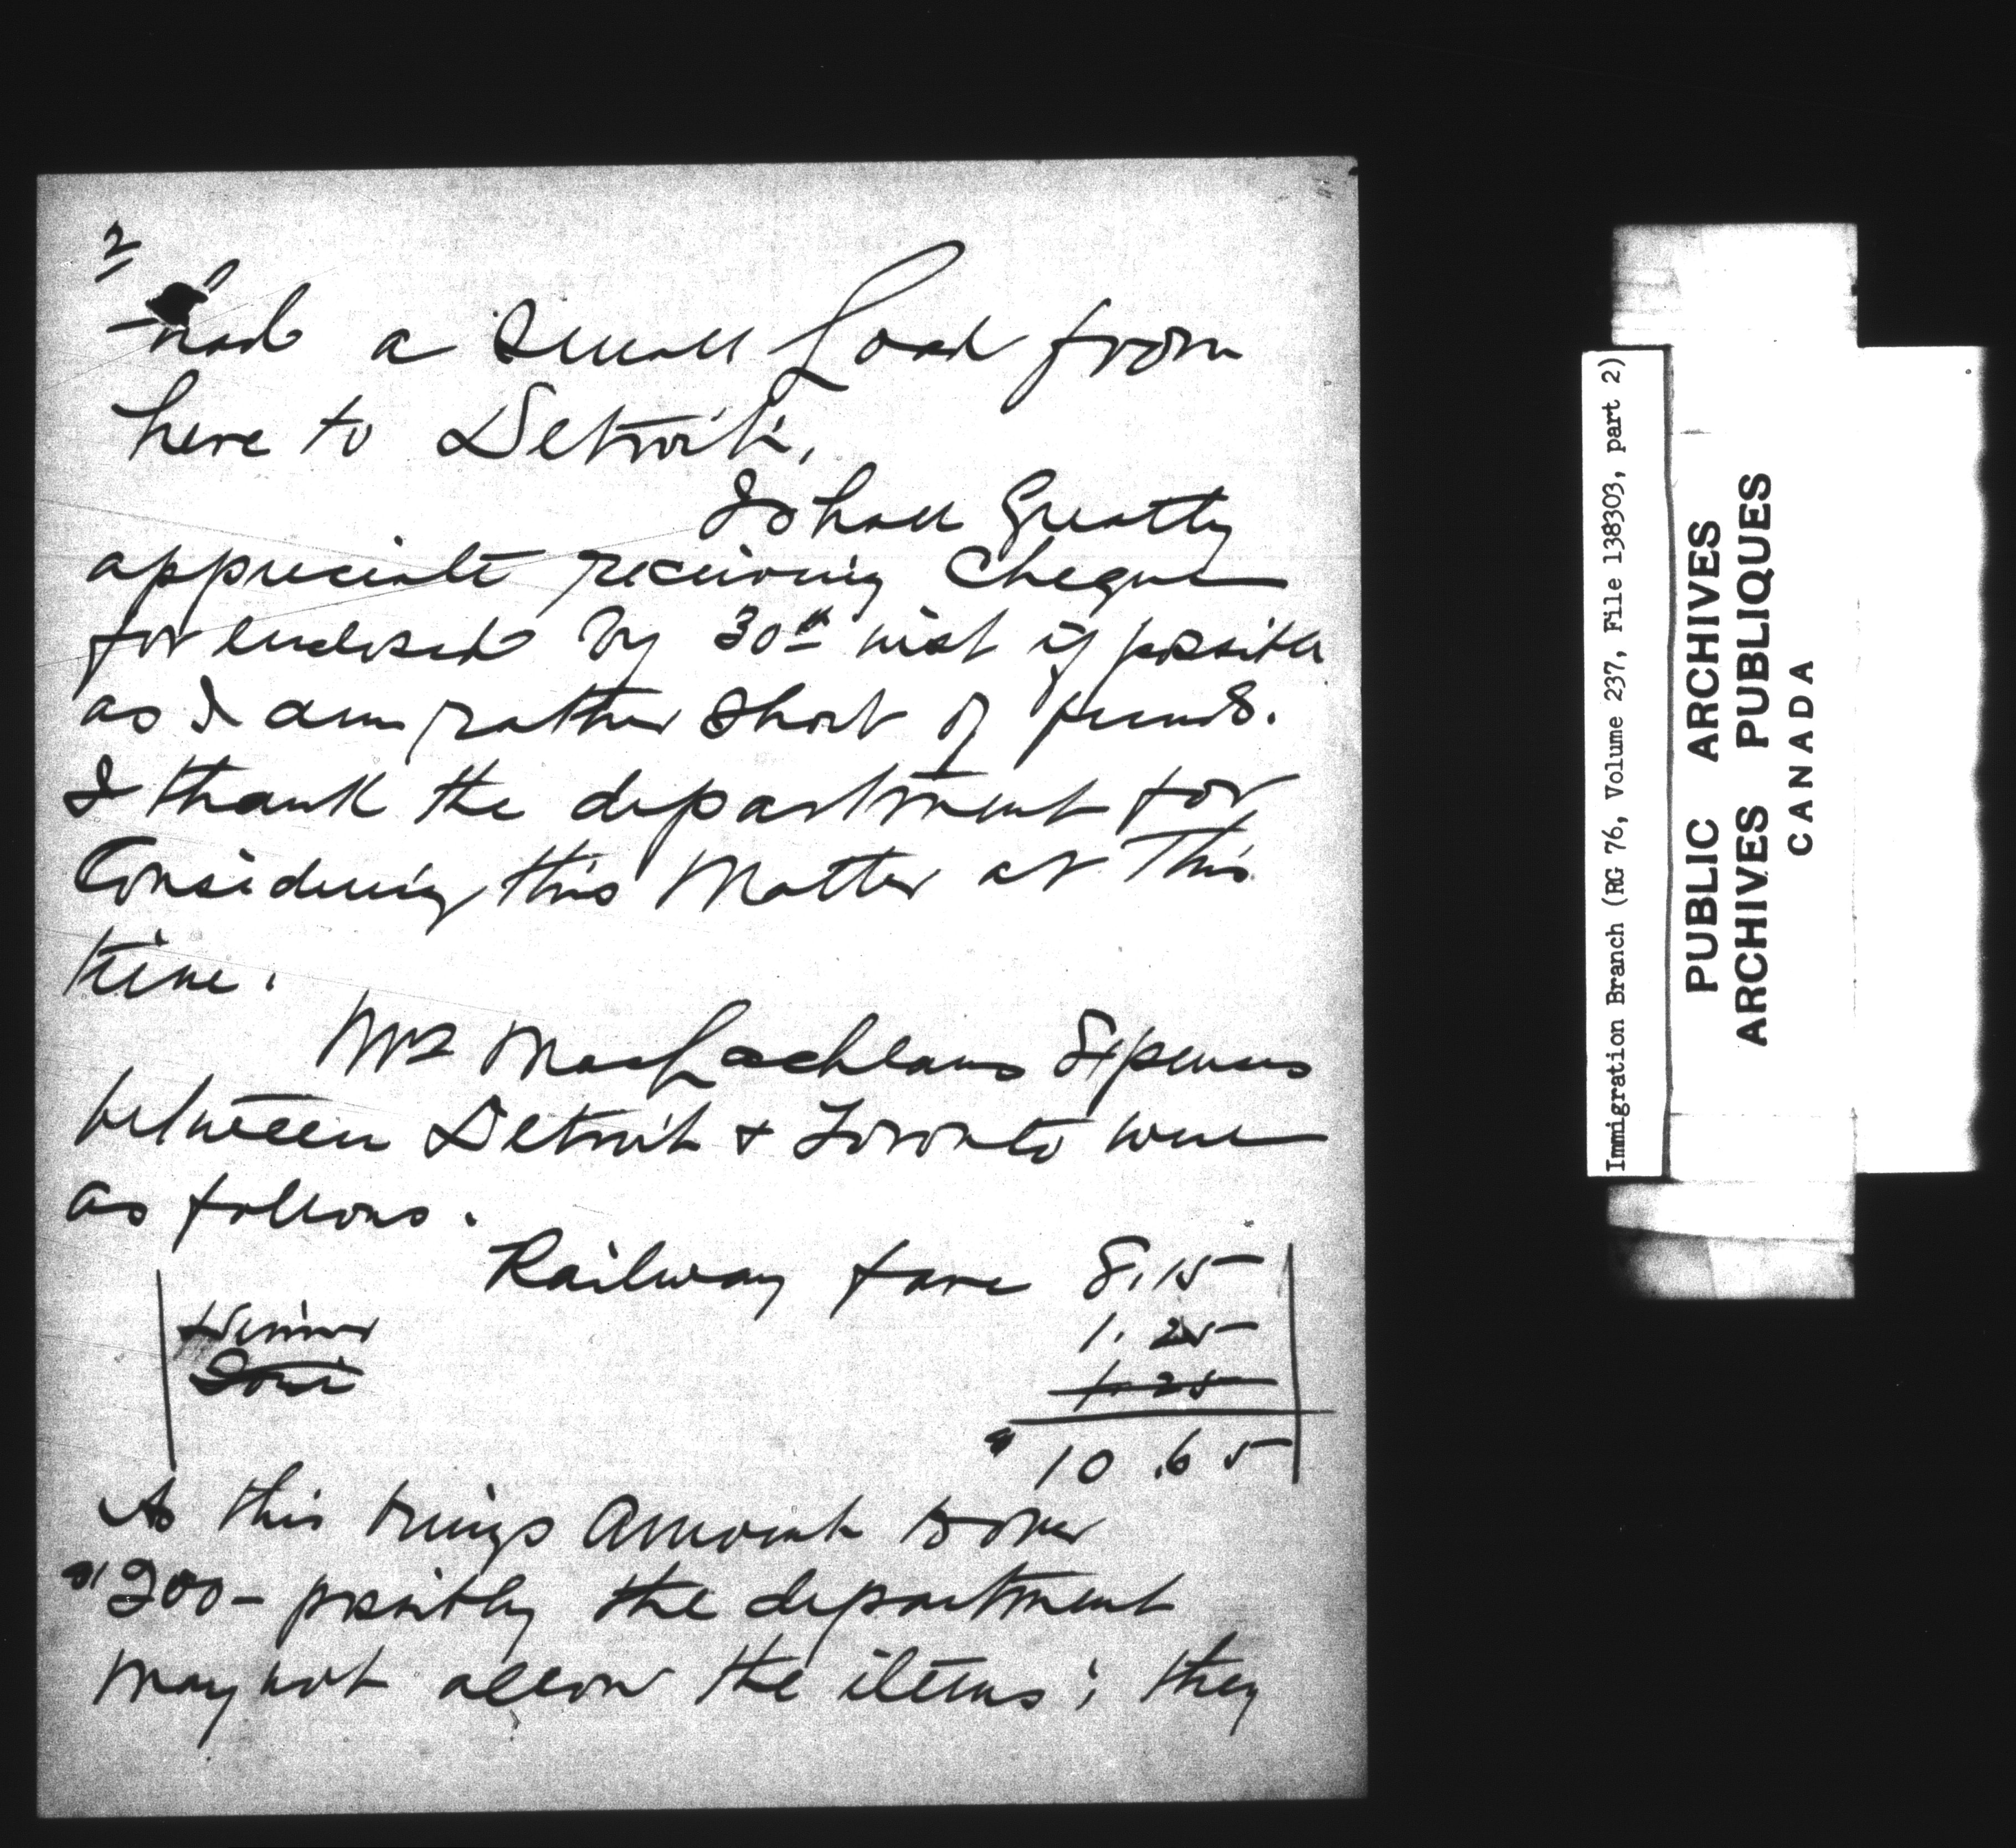 2
had a small Load from
here to Detroit.
I shall Greatly
appreciate receiving Cheque
for enclosed by 30th inst if possible
as I am rather short of funds.
I thank the department for
Considering this Matter at This
time.
Mrs MacLachlans Expenses
between Detroit & Toronto were
as follows.
Railway fare 8.15
Dinner 1.25
1.25
$ 10.65
As this brings Amount to over
$200- possibly the department
may not allow the items; they
Immigration Branch (RG 76, Volume 237, File 138303, part 2)
PUBLIC ARCHIVES
ARCHIVES PUBLIQUES
CANADA